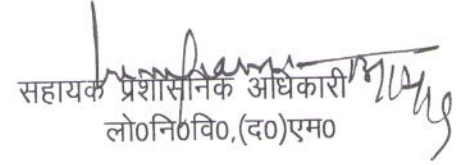 सहायक प्रशासनिक अधिकारी
लो०नि०वि०,(द०)एम०